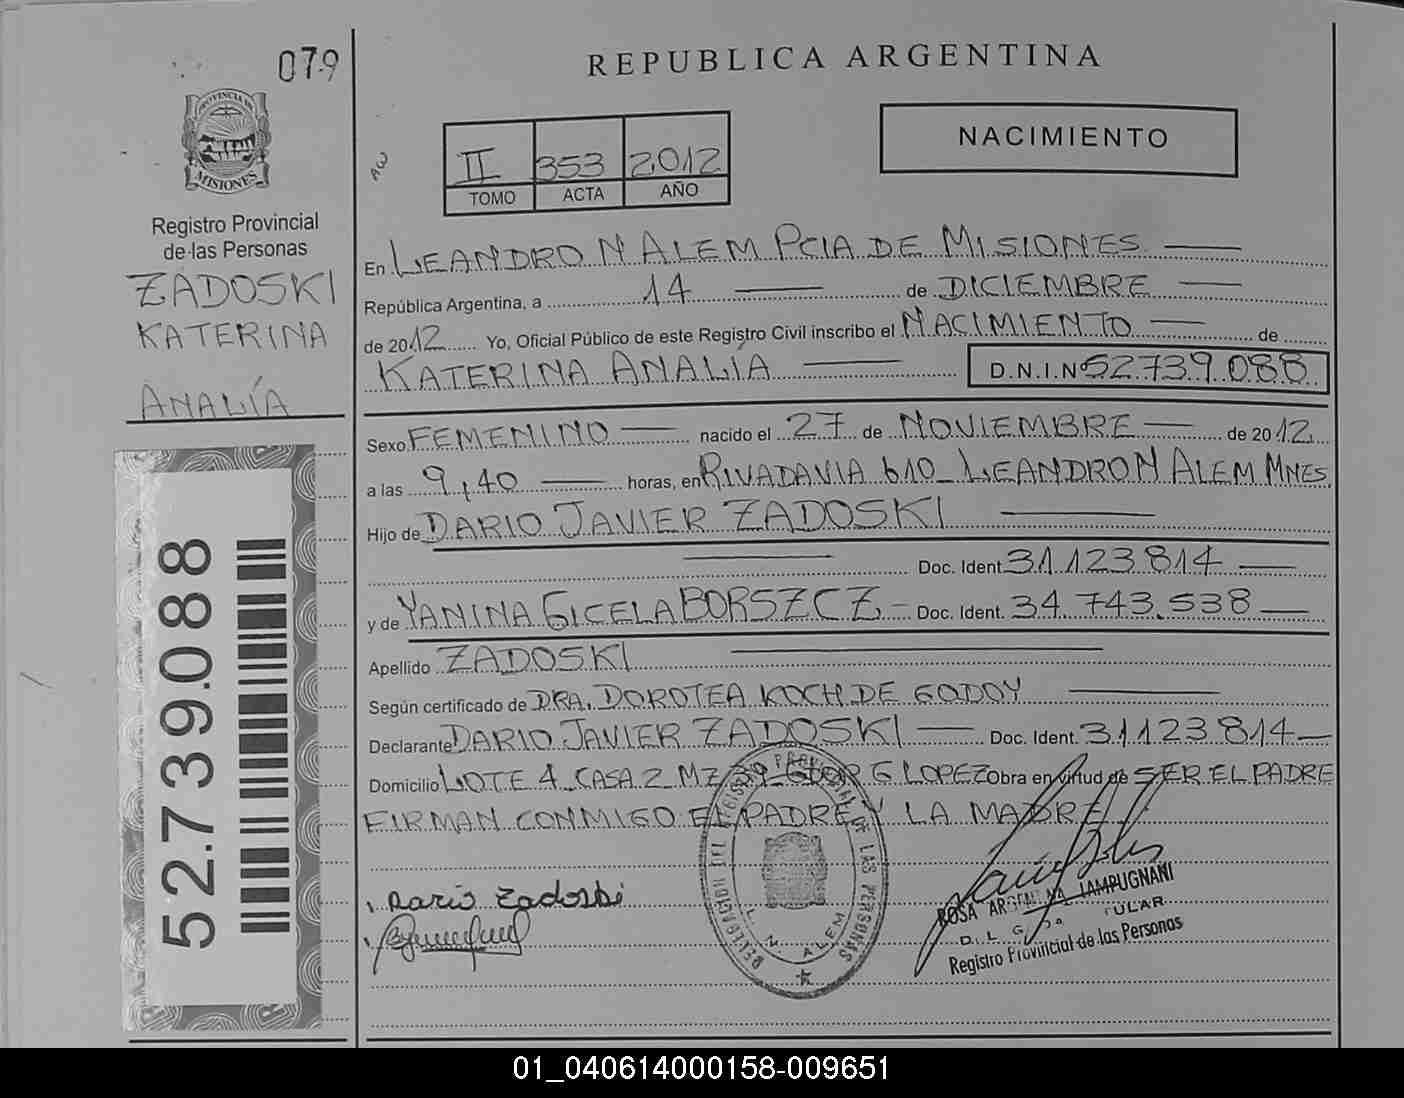 079
REPUBLICA ARGENTINA
PROVINCIA DE
MISIONES
Registro Provincial
de las Personas
ZADOSKI
KATERINA
ANALÍA
52.739.088
II 353 2012
TOMO ACTA AÑO
NACIMIENTO
En LEANDRO N ALEM PCIA DE MISIONES
República Argentina, a 14 de DICIEMBRE
de 2012 Yo, Oficial Público de este Registro Civil inscribo el NACIMIENTO de
KATERINA ANALIA D.N.I.Nº 52739.088
Sexo FEMENINO nacido el 27 de NOVIEMBRE de 2012
a las 9,40 horas, en RIVADAVIA 610 LEANDRO N ALEM MNES
Hijo de DARIO JAVIER ZADOSKI
Doc. Ident. 31.123.814
y de YANINA GICELA BORSZCZ Doc. Ident. 34.743.538
Apellido ZADOSKI
Según certificado de DRA. DOROTEA KOCH DE GODOY
Declarante DARIO JAVIER ZADOSKI Doc. Ident. 31123814
Domicilio LOTE 4 CASA 2 MZ G. LOPEZ Obra en virtud de SER EL PADRE
FIRMAN CONMIGO EL PADRE Y LA MADRE
Dario Zadoski
DELEGACION DEL REGISTRO PROVINCIAL DE LAS PERSONAS
L. N. ALEM
ROSA ARGENTINA LAMPUGNANI
Registro Provincial de las Personas
01_040614000158-009651